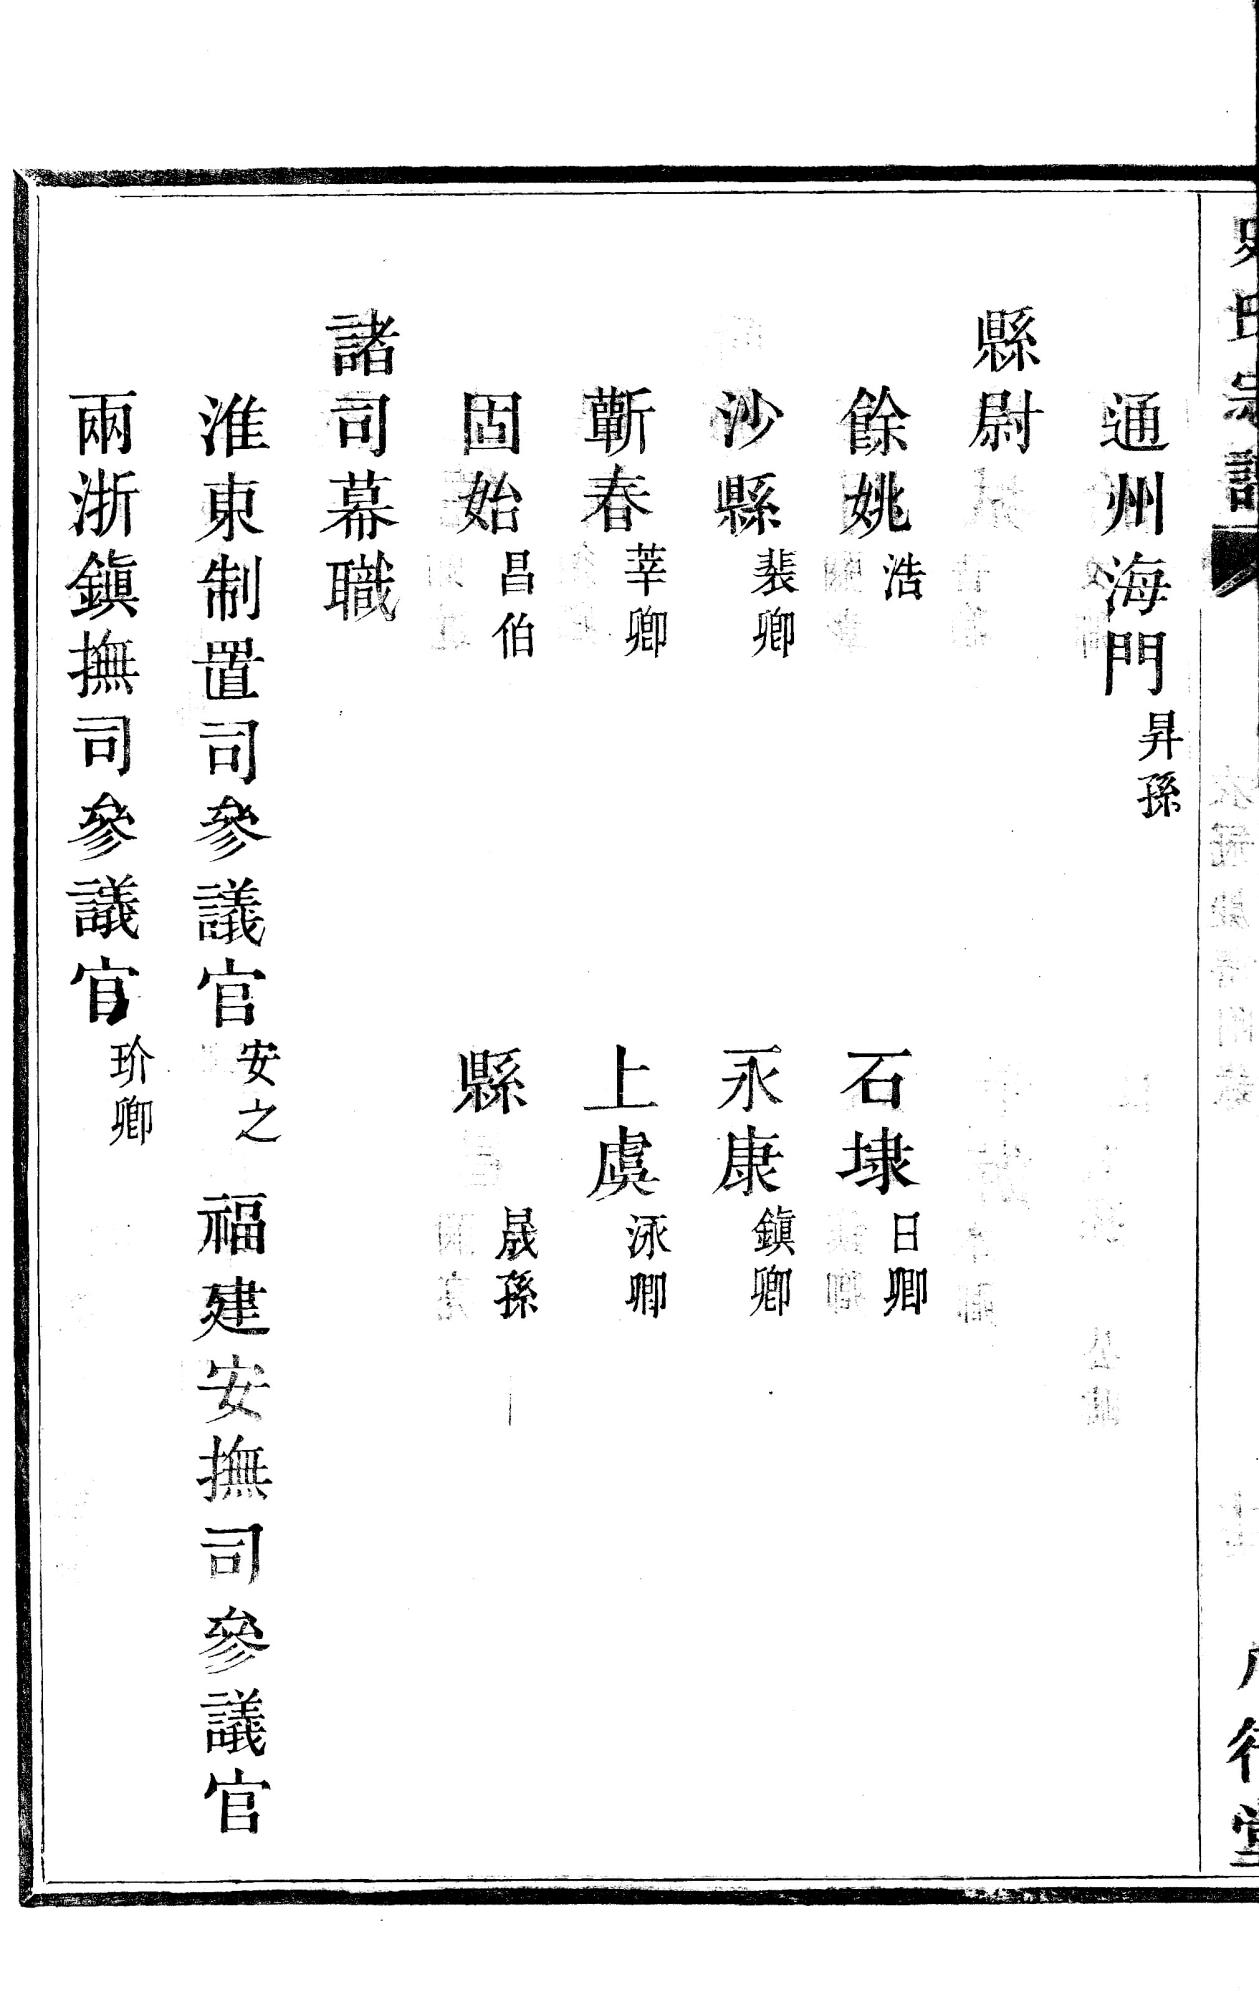 史氏宗譜
八行堂
通州海門 昇孫
縣尉
餘姚 浩 石埭 日卿
沙縣 裴卿 永康 鎮卿
蘄春 莘卿 上虞 泳卿
固始 昌伯 縣 晟孫
諸司幕職
淮東制置司參議官 安之 福建安撫司參議官
兩浙鎭撫司參議官 玠卿